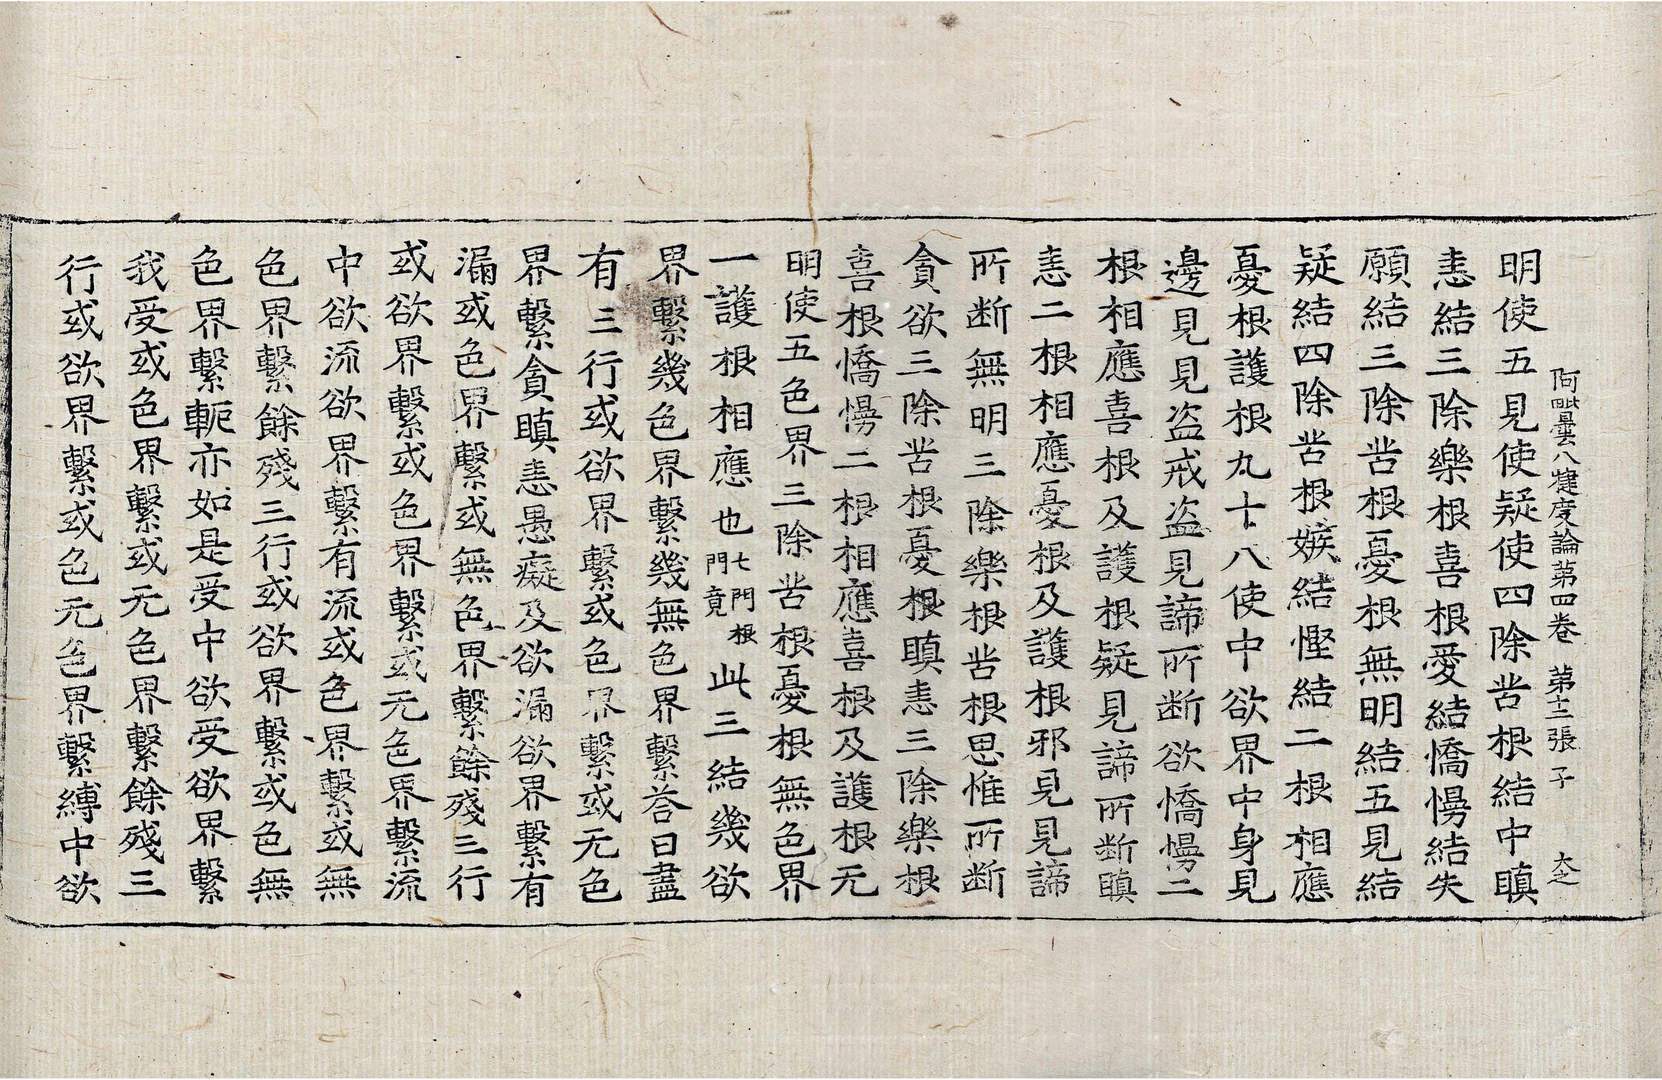 阿毗曇八犍度論第四卷 第十二張 子 大之
明使五見使疑使四除苦根結中瞋
恚結三除樂根喜根愛結憍慢結失
願結三除苦根憂根無明結五見結
疑結四除苦根嫉結慳結二根相應
憂根護根九十八使中欲界中身見
邊見見盗戒盗見諦所断欲憍慢二
根相應喜根及護根疑見諦所断瞋
恚二根相應憂根及護根邪見見諦
所断無明三除樂根苦根思惟所断
貪欲三除苦根憂根瞋恚三除樂根
喜根憍慢二根相應喜根及護根无
明使五色界三除苦根憂根無色界
一護根相應也七門根門竟此三結幾欲
界繫幾色界繫幾無色界繫荅曰盡
有三行或欲界繫或色界繫或无色
界繫貪瞋恚愚癡及欲漏欲界繫有
漏或色界繫或無色界繫餘殘三行
或欲界繫或色界繫或无色界繫流
中欲流欲界繫有流或色界繫或無
色界繫餘殘三行或欲界繫或色無
色界繫軛亦如是受中欲受欲界繫
我受或色界繫或无色界繫餘殘三
行或欲界繫或色无色界繫縛中欲